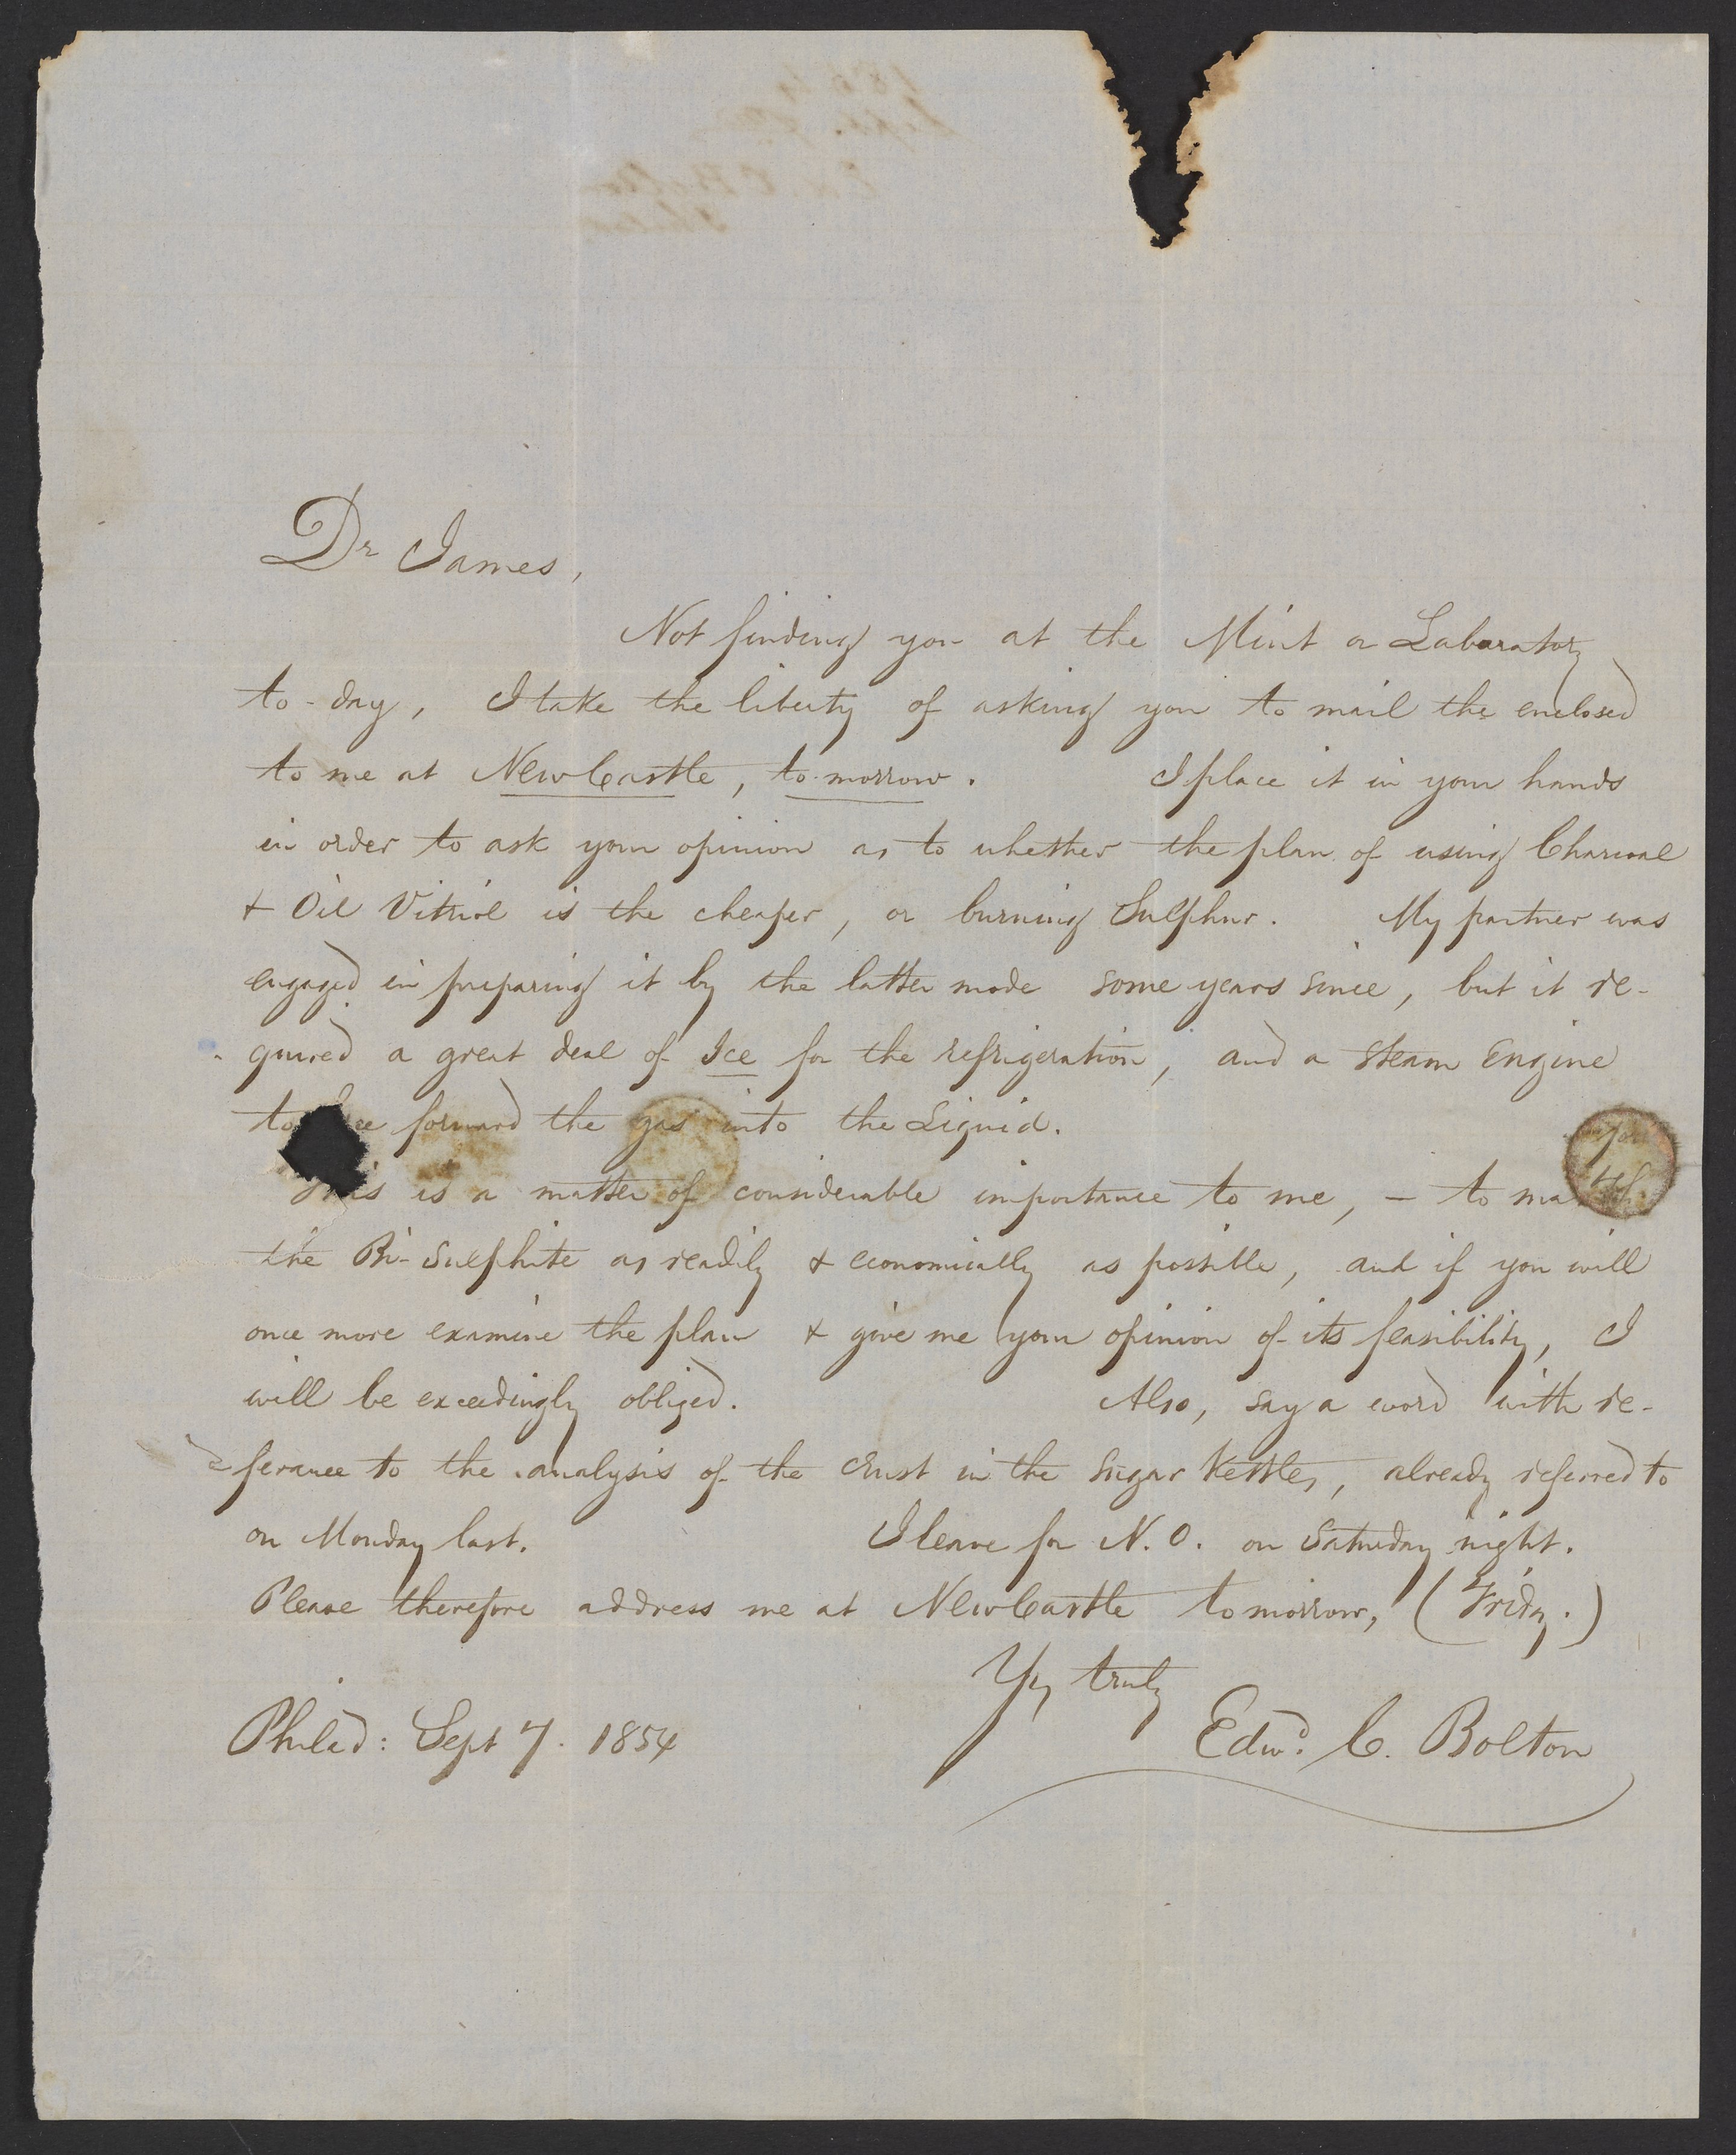 Dr James,
Not finding you at the Mint or Laboratory
to-day, I take the liberty of asking you to mail the enclosed
to me at NewCastle, to-morrow. I place it in your hands
in order to ask your opinion as to whether the plan of using Charcoal
& Oil Vitriol is the cheaper, or burning Sulphur. My partner was
engaged in preparing it by the latter mode some years since, but it re-
quired a great deal of Ice for the refrigeration, and a Steam Engine
to forward the gas into the Liquid.
This is a matter of considerable importance to me, — to ma
the Bi-Sulphite as readily & economically as possible, and if you will
once more examine the plan & give me your opinion of its feasibility, I
will be exceedingly obliged. Also, say a word with re-
ferance to the analysis of the crust in the Sugar Kettles, already referred to
on Monday last. I leave for N.O. on Saturday night.
Please therefore address me at NewCastle tomorrow, (Fridy.)
Yrs truly
Philad: Sept 7. 1854 Edwd. C. Bolton